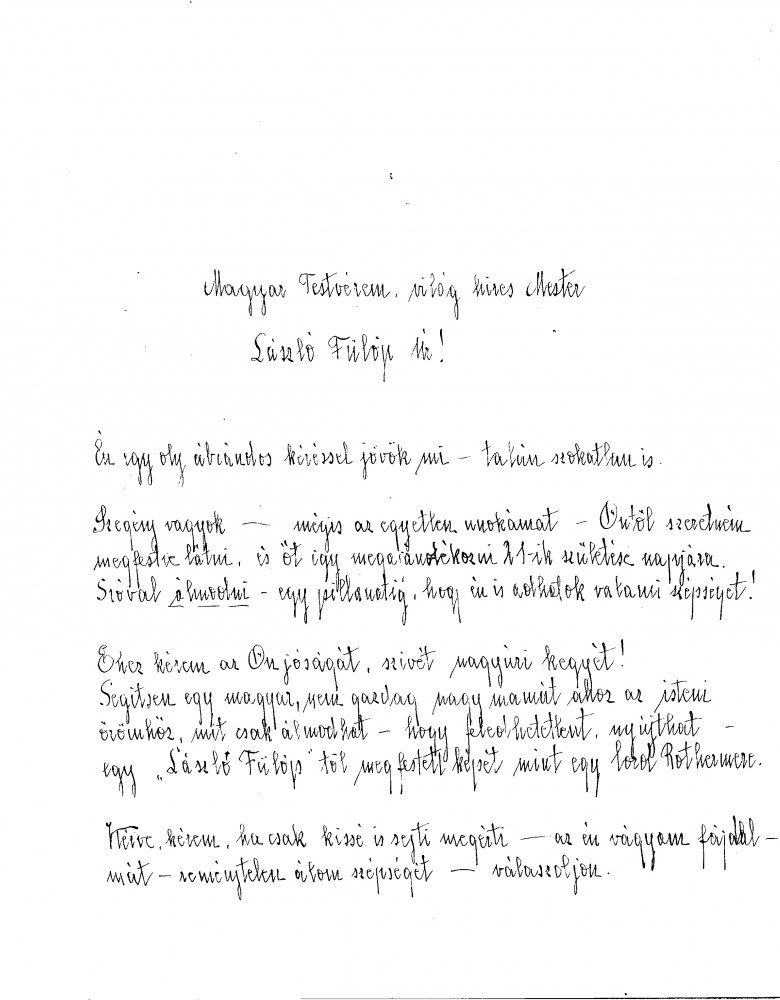 Magyar Testvérem, világ hires Mester
László Fülöp Úr!
Én egy oly ábrándos kéréssel jövök mi – talán szokatlan is.
Szegény vagyok — mégis az egyetlen unokámat – Öntől szeretném
megfestve látni, és őt így megajándékozni 21-ik születése napjára.
Szóval álmodni – egy pillanatig, hogy én is adhatok valami szépséget!
Ehez kérem az Ön jóságát, szivét nagyúri kegyét!
Segitsen egy magyar, nem gazdag nagy mamát ahoz az isteni
örömhöz, mit csak álmodhat – hogy feledhetetlent, nyújthat –
egy „László Fülöp" től megfestett képét mint egy lord Rothermere.
Kérve, kérem, ha csak kissé is sejti megérti — az én vágyam fájdal –
mát – reménytelen álom szépségét — válaszoljon.